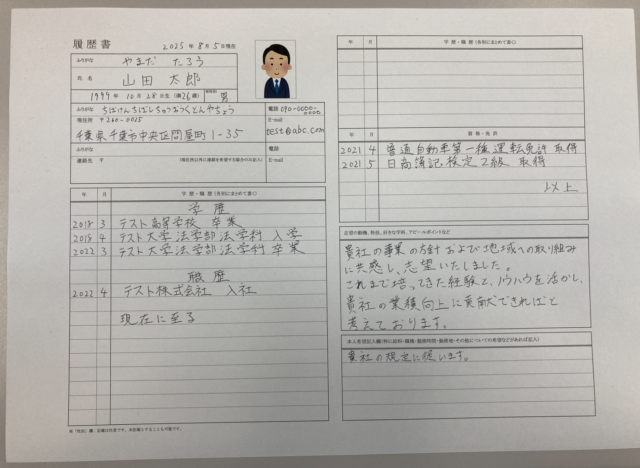 履歴書
2025年 8月 5日現在
ふりがな やまだ たろう
氏 名 山田 太郎
1999年 10月 28日生 (満26歳) 男
ふりがな ちばけん ちばし ちゅうおうく とんやちょう
電話 090-0000-0000
現住所 〒260-0015
千葉県千葉市中央区問屋町1-35
E-mail
test@abc.com
ふりがな
電話
連絡先 〒 (現住所以外に連絡を希望する場合のみ記入)
E-mail
年 月 学歴・職歴(各別にまとめて書く)
学歴
2018 3 テスト高等学校 卒業
2018 4 テスト大学法学部法学科 入学
2022 3 テスト大学法学部法学科 卒業
職歴
2022 4 テスト株式会社 入社
現在に至る
年 月 学歴・職歴(各別にまとめて書く)
年 月 資格・免許
2021 4 普通自動車第一種運転免許 取得
2021 5 日商簿記検定2級 取得
以上
志望の動機、特技、好きな学科、アピールポイントなど
貴社の事業の方針および地域への取り組み
に共感し、志望いたしました。
これまで培ってきた経験と、ノウハウを活かし、
貴社の業績向上に貢献できればと
考えております。
本人希望記入欄(特に給料・職種・勤務時間・勤務地・その他についての希望などがあれば記入)
貴社の規定に従います。
※「性別」欄:記載は任意です。未記載とすることも可能です。